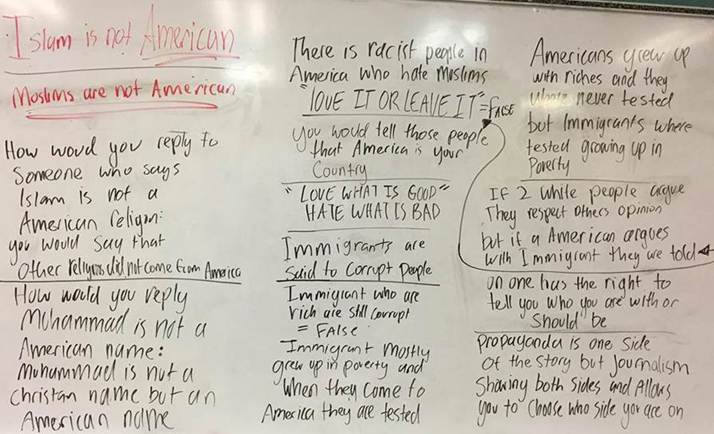 Islam is not American
Moslims are not American
How woud you reply to
Someone who says
Islam is not a
American religon:
you would say that
other religions did not come from America
How would you reply
Mohammad is not a
American name:
Muhammad is not a
Christan name but an
American name
There is racist people in
America who hate moslims
"LOVE IT OR LEAVE IT" = FALSE
you would tell those people
that America is your
Country
"LOVE WHAT IS GOOD"
HATE WHAT IS BAD
Immigrants are
said to Corrupt People
Immigrant who are
rich are still corrupt
= FAlSE
Immigrant mostly
grew up in poverty and
when they come to
America they are tested
Americans grew up
with riches and they
never tested
but Immigrants where
tested growing up in
Poverty
If 2 white people argue
They respect others opinion
but if a American argues
with Immigrant they are told
on one has the right to
tell you who you are with or
should be
propaganda is one side
of the story but Journalism
Showing both sides and Allows
you to Choose who side you are on